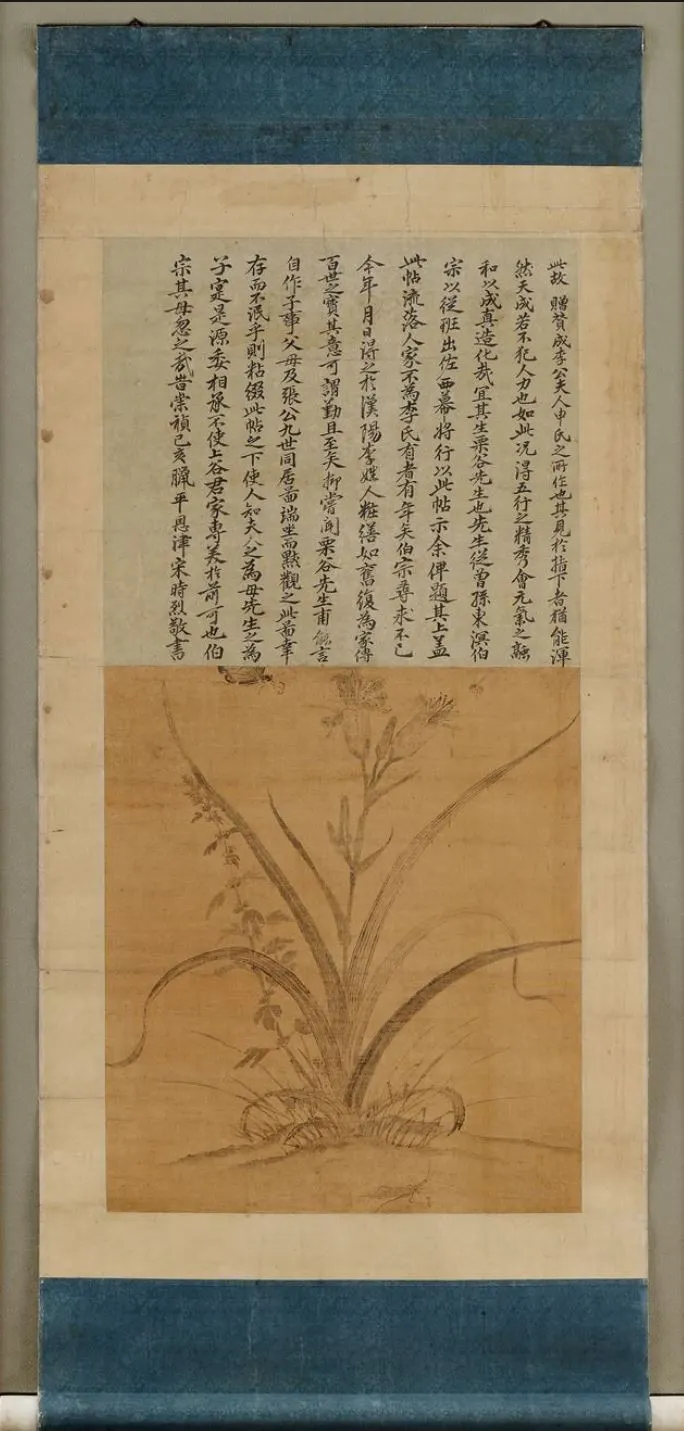 此故 贈贊成李公夫人申氏之所作也其見於指下者猶能渾
然天成若不犯人力也如此況得五行之精秀會元氣之融
和以成真造化哉宜其生栗谷先生也先生從曾孫東溟伯
宗以從班出佐西幕將行以此帖示余俾題其上蓋
此帖流落人家不為李氏有者有年矣伯宗尋求不已
今年月日得之於漢陽李嫂人粧繕如舊復為家傳
百世之寶其意可謂勤且至矣抑嘗聞栗谷先生甫能言
自作子事父母及張公九世同居啚瑞坐而默觀之此啚幸
存而不泯乎則粘綴此帖之下使人知夫人之為母先生之為
子寔是源委相承不使上谷君家專美於前可也伯
宗其毋忽之哉峕崇禎己亥臘平恩津宋時烈敬書